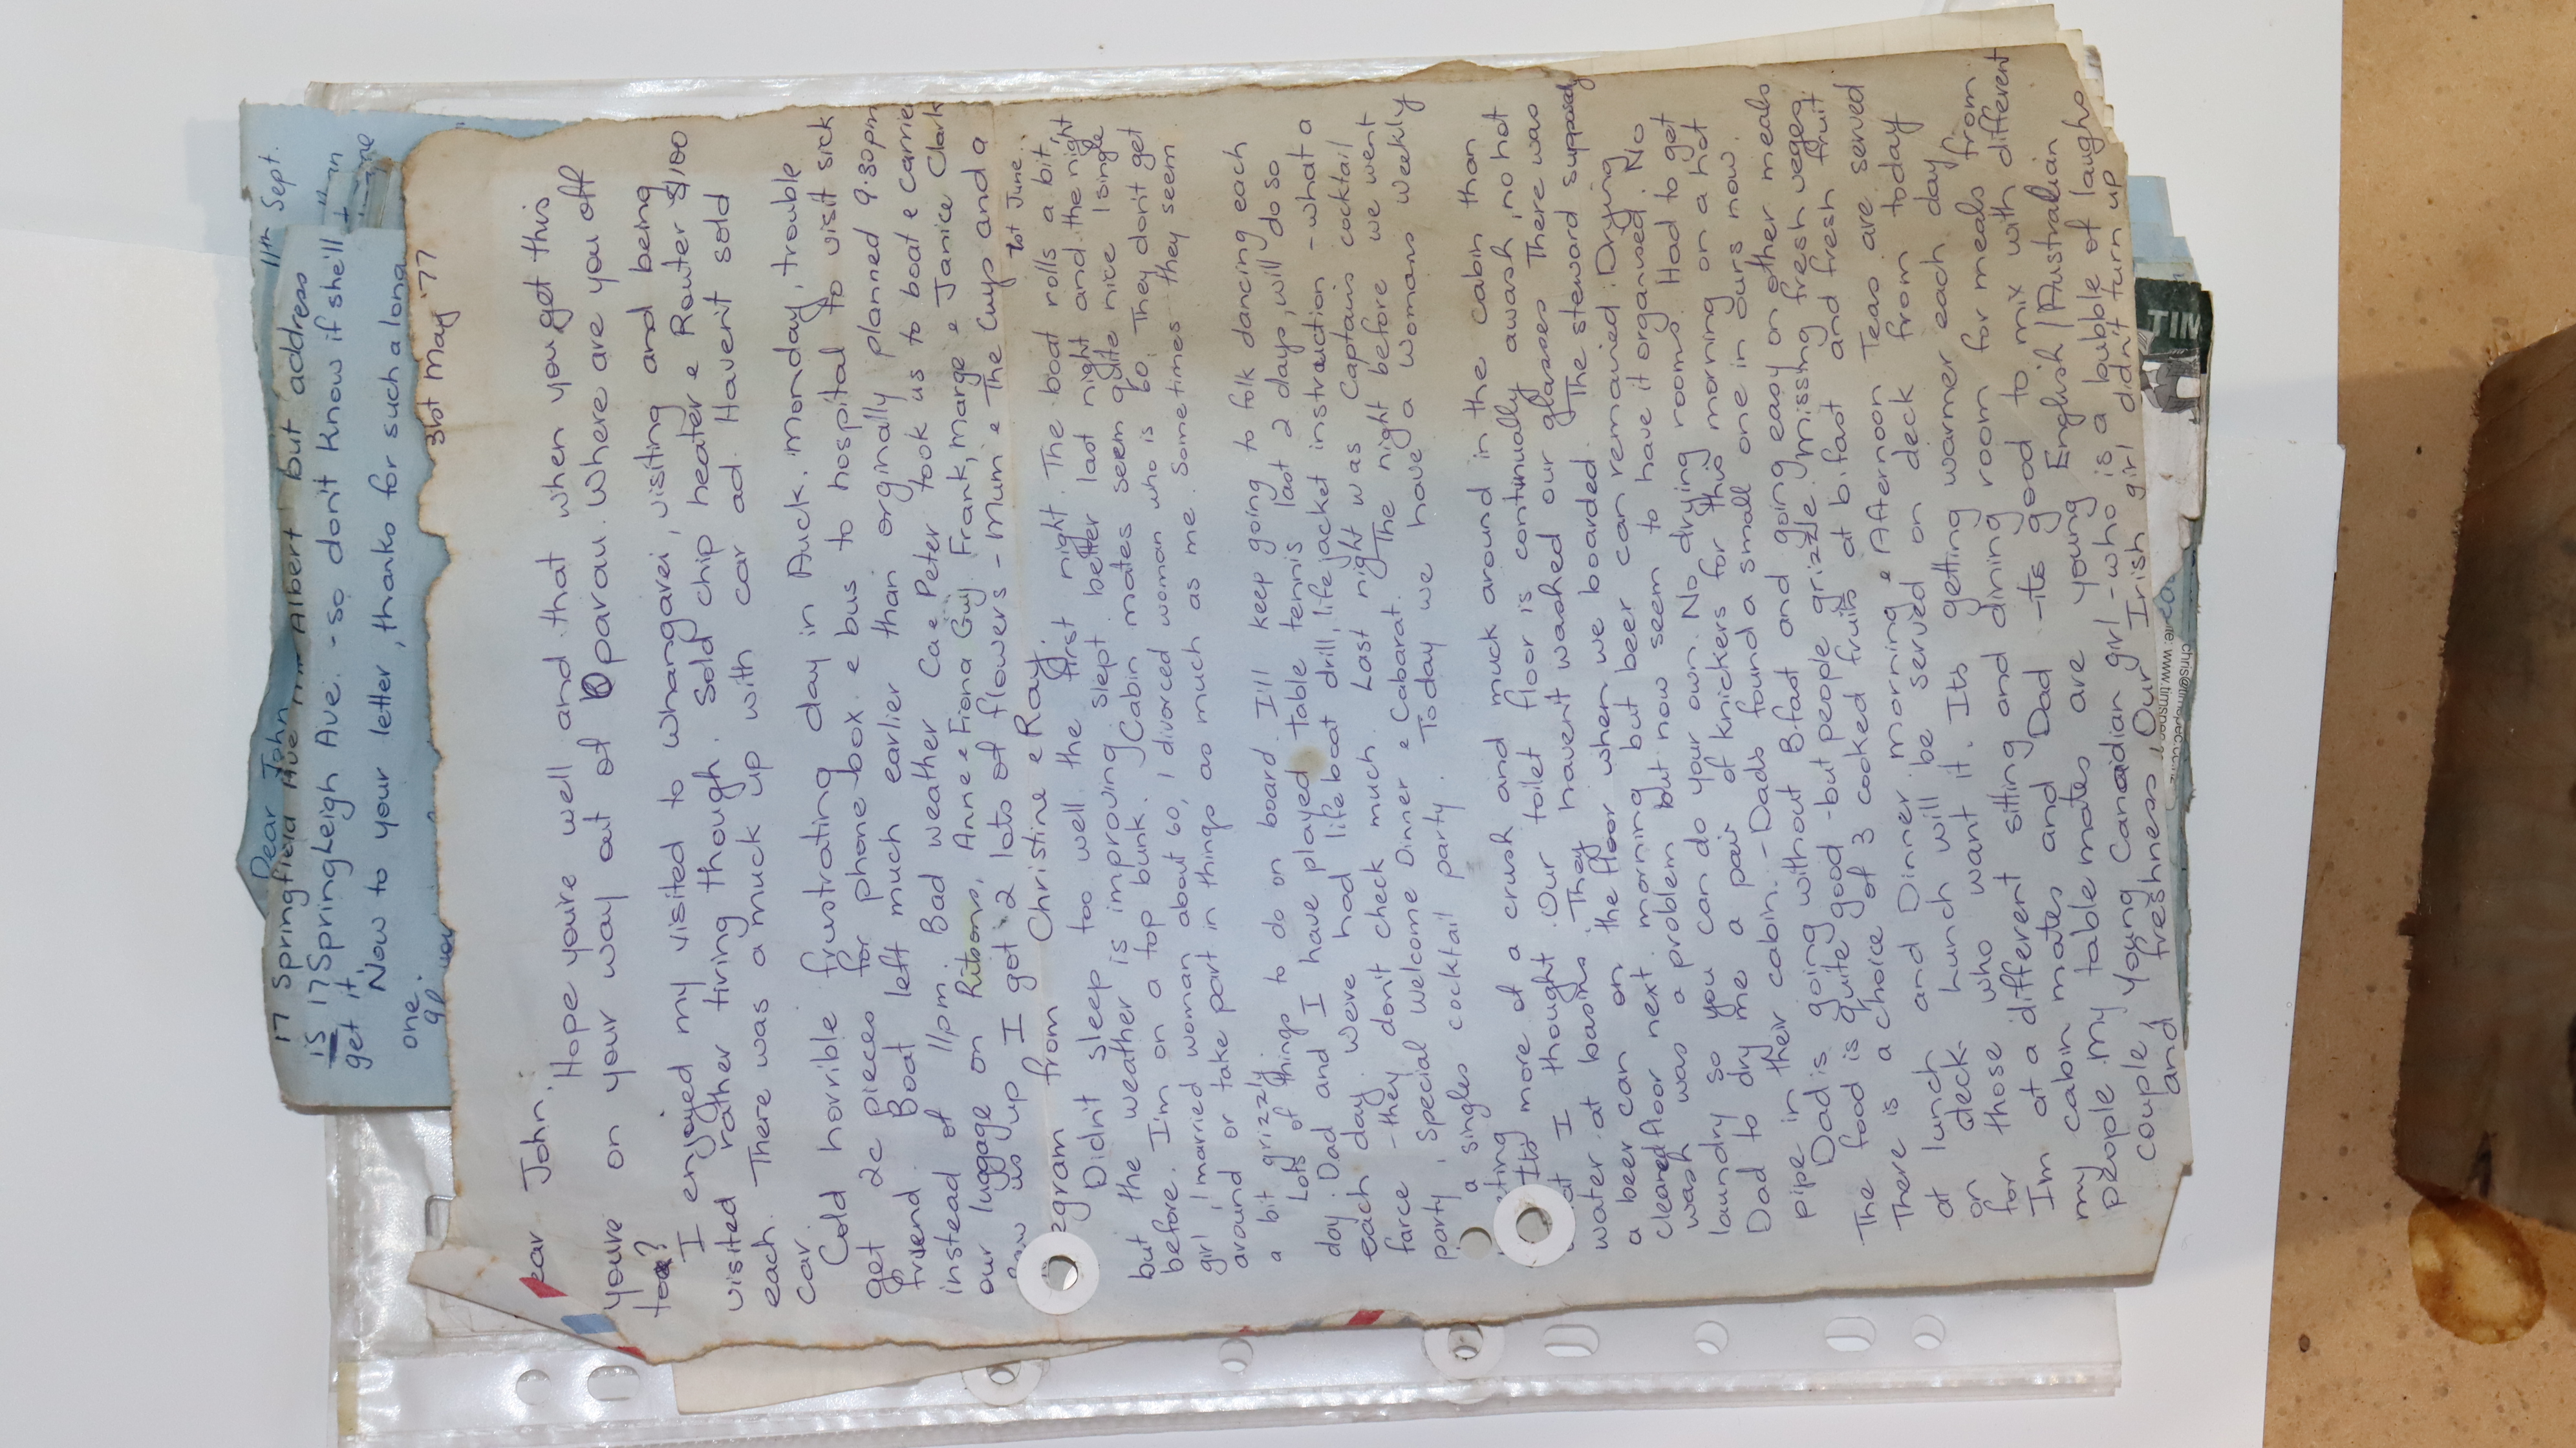 11th Sept.
Dear John,
17 Springfield Ave Albert but address
is 17 Springleigh Ave. - so don't know if she'll
get it
Now to your letter, thanks for such a long
one.
31st May '77
ear John,
Hope you're well and that when you get this
you're on your way out of Oparau. Where are you off
too?
I enjoyed my visited to Whangarei, visiting and being
visited rather tiring though. Sold chip heater e Router $100
each. There was a muck up with car ad. Havent sold
car.
Cold horrible frustrating day in Auck. Monday, trouble
get 2c pieces for phone box e bus to hospital to visit sick
friend. Boat left much earlier than orginally planned 9.30pm
instead of 11pm. Bad weather Ca e Peter took us to boat e carrie
our luggage on Ribbons, Anne e Fiona Guy, Frank, Marge e Janice Clark
saw us up I got 2 lots of flowers - Mum e The Guys and a
gram from Christine e Ray.
1st June.
Didn't sleep too well the first night. The boat rolls a bit,
but the weather is improving slept better last night and the night
before. I'm on a top bunk. Cabin mates seem quite nice 1 single
girl, 1 married woman about 60, 1 divorced woman who is 60. They don't get
around or take part in things as much as me. Sometimes they seem
a bit grizzly.
Lots of things to do on board. I'll keep going to folk dancing each
day. Dad and I have played table tennis last 2 days, will do so
each day. Weve had life boat drill, life jacket instruction - what a
farce - they don't check much. Last night was Captains cocktail
party, Special Welcome Dinner e Cabarat. The night before we went
a singles cocktail party. Today we have a womans weekly
Its more of a crush and muck around in the cabin than
I thought. Our toilet floor is continually awash, no hot
water at basins. They havent washed our glasses There was
a beer can on the floor when we boarded. The steward supposedly
cleaned floor next morning but beer can remained. Drying
wash was a problem but now seem to have it organised. No
laundry so you can do your own. No drying rooms. Had to get
Dad to dry me a pair of knickers for this morning on a hot
pipe in their cabin. - Dads found a small one in ours now.
Dad is going without Bfast and going easy on other meals
The food is quite good - but people grizzle. Missing fresh veges.
There is a choice of 3 cooked fruits at b.fast and fresh fruit
at lunch and Dinner. Morning e Afternoon Teas are served
on deck. Lunch will be served on deck from today
for those who want it. Its getting warmer each day
Im at a different sitting and dining room for meals from
my cabin mates and Dad - its good to mix with different
people my table mates are young English / Australian
couple, young Canadian girl - who is a bubble of laughs
and freshness, Our Irish girl didn't turn up
TIN